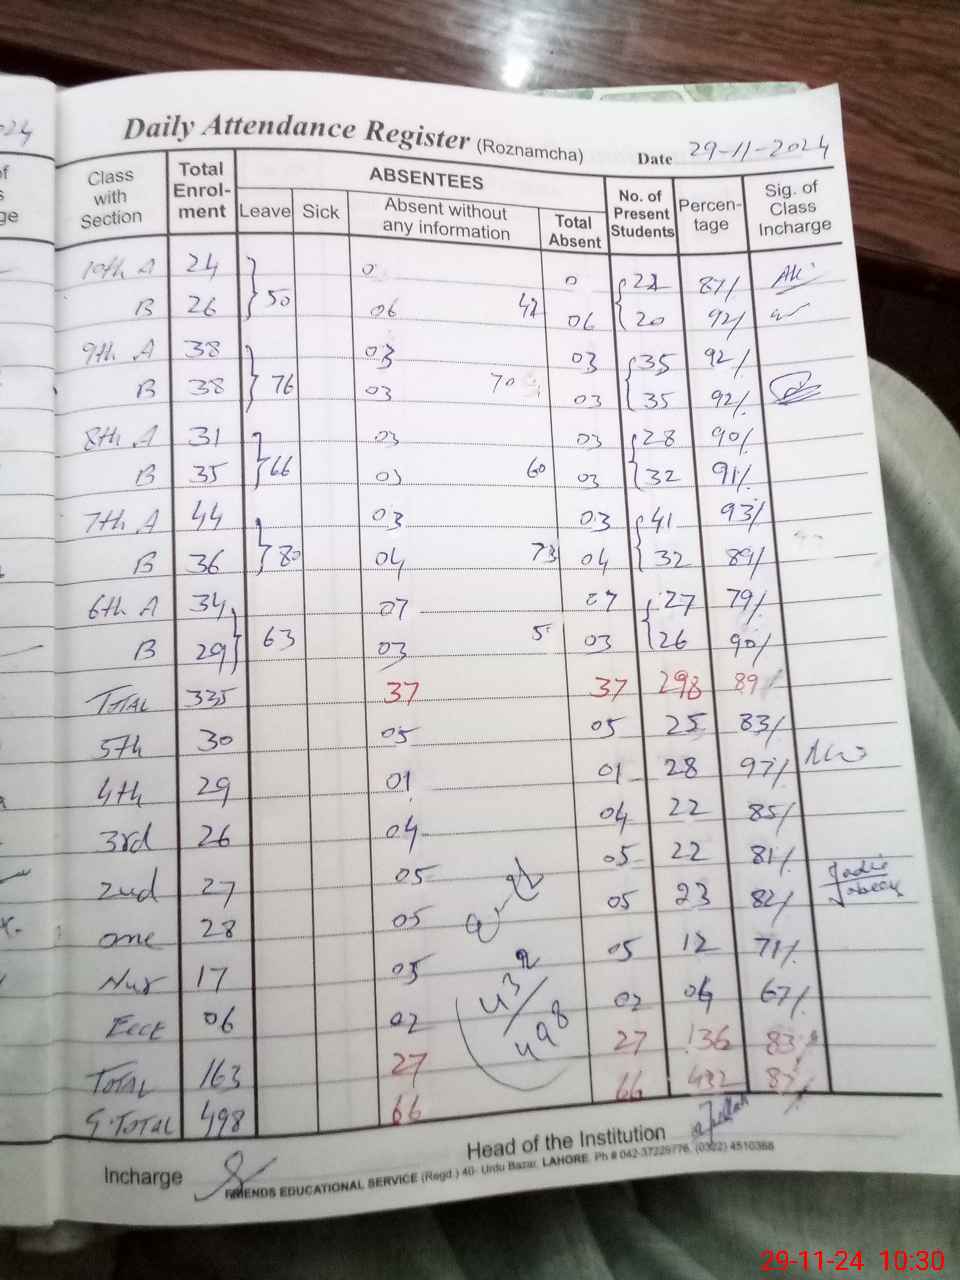 Daily Attendance Register (Roznamcha) Date 29-11-2024
Class with Section Total Enrol-ment ABSENTEES No. of Present Students Percen-tage Sig. of Class Incharge
Leave Sick Absent without any information Total Absent
10th A 24 0 0 87%
B 26 50 06 06 20 92%
9th A 38 03 03 35 92%
B 38 76 03 70 03 35 92%
8th A 31 03 03 28 90%
B 35 66 03 60 03 32 91%
7th A 44 03 03 41 93%
B 36 80 04 73 04 32 89%
6th A 34 07 07 27 79%
B 29 63 03 5 03 26 90%
TOTAL 335 37 37 298 89
5th 30 05 05 25 83%
4th 29 01 01 28 97%
3rd 26 04 04 22 85%
2nd 27 05 05 22 81%
one 28 05 05 23 82%
Nur 17 05 05 12 71%
06 02 02 04 67%
TOTAL 163 27 27 136 83
G.TOTAL 498 66 66 432 87%
432/498
Incharge Head of the Institution
FRIENDS EDUCATIONAL SERVICE (Regd.) 40- Urdu Bazar, LAHORE. Ph # 042-37225776, (0322) 4510368
29-11-24 10:30